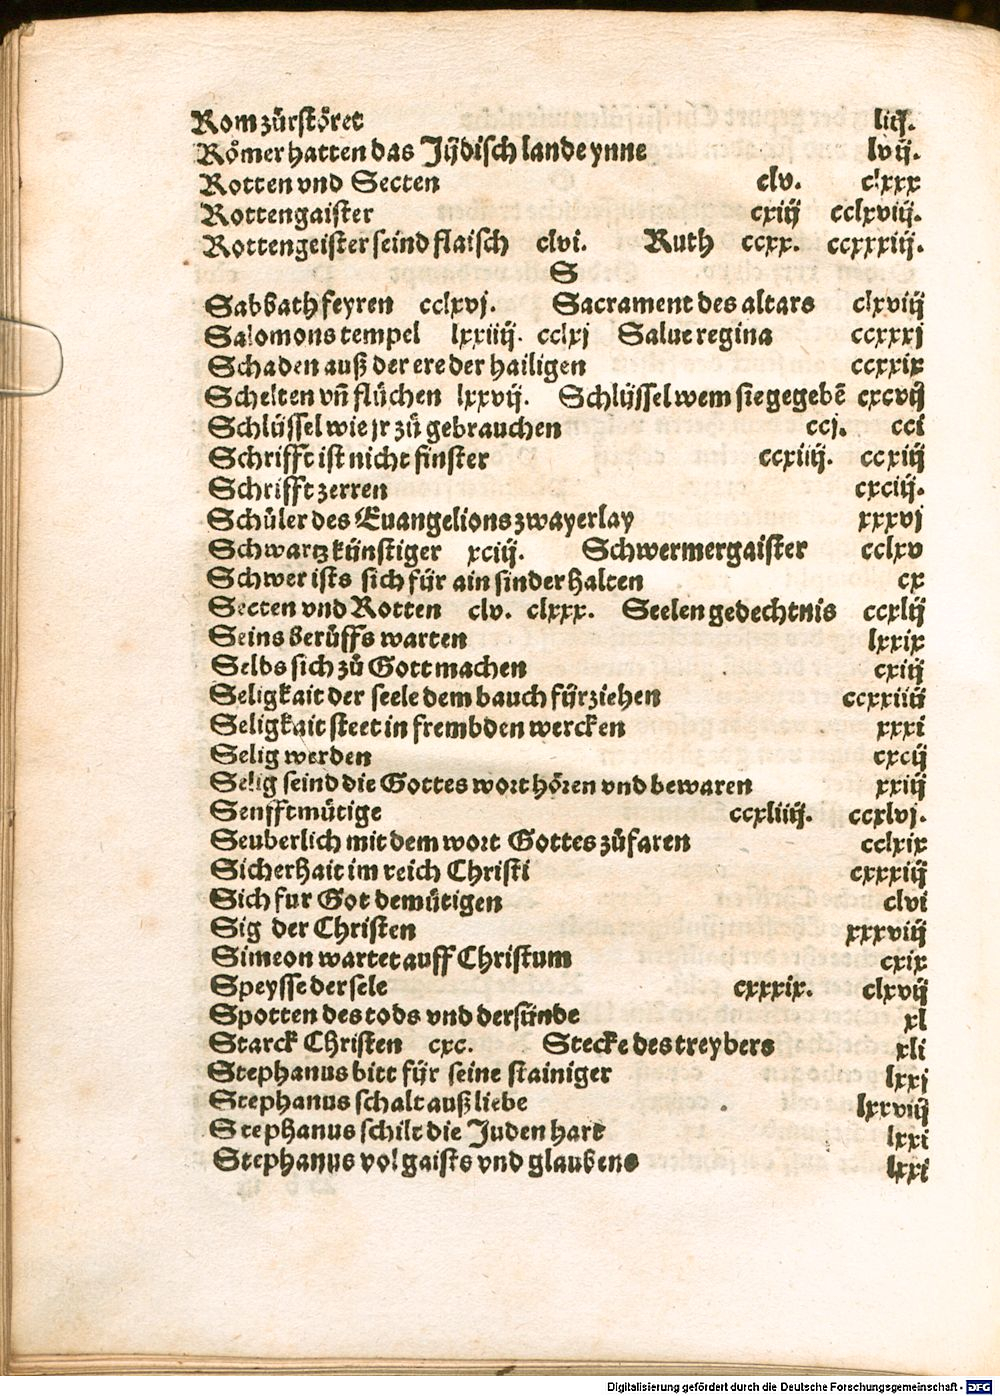 Rom zürstöret liij.
Römer hatten das Jüdisch lande ynne lvij.
Rotten vnd Secten clv. clxxx
Rottengaister cxiij cclxviij.
Rottengeister seind flaisch clvi. Ruth ccxx. ccxxxiij.
S
Sabbath feyren cclxvj. Sacrament des altars clxviij
Salomons tempel lxxiiij. cclxj Salue regina ccxxxj
Schaden auß der ere der hailigen ccxxix
Schelten vñ flůchen lxxvij. Schlüssel wem sie gegebē cxcvij
Schlüssel wie jr zů gebrauchen ccj. cci
Schrifft ist nicht finster ccxiiij. ccxiij
Schrifft zerren cxciij.
Schůler des Euangelions zwayerlay xxxvj
Schwartzkünstiger xciij. Schwermergaister cclxv
Schwer ists sich für ain sinder halten cx
Secten vnd Rotten clv. clxxx. Seelen gedechtnis ccxlij
Seins berůffs warten lxxix
Selbs sich zů Gott machen cxiij
Seligkait der seele dem bauch fürziehen ccxxiiij
Seligkait steet in frembden wercken xxxi
Selig werden cxcij
Selig seind die Gottes wort hören vnd bewaren xxiij
Senfftmütige ccxliiij. ccxlvj.
Seuberlich mit dem wort Gottes zůfaren cclxix
Sicherhait im reich Christi cxxxiij
Sich fur Got demütigen clvi
Sig der Christen xxxviij
Simeon wartet auff Christum cxix
Speysse der sele cxxxix. clxvij
Spotten des tods vnd der sünde xl
Starck Christen cxc. Stecke des treybers xli
Stephanus bitt für seine stainiger lxxj
Stephanus schalt auß liebe lxxviij
Stephanus schilt die Juden hart lxxi
Stephanus vol gaists vnd glaubens lxxi
Digitalisierung gefördert durch die Deutsche Forschungsgemeinschaft - DFG